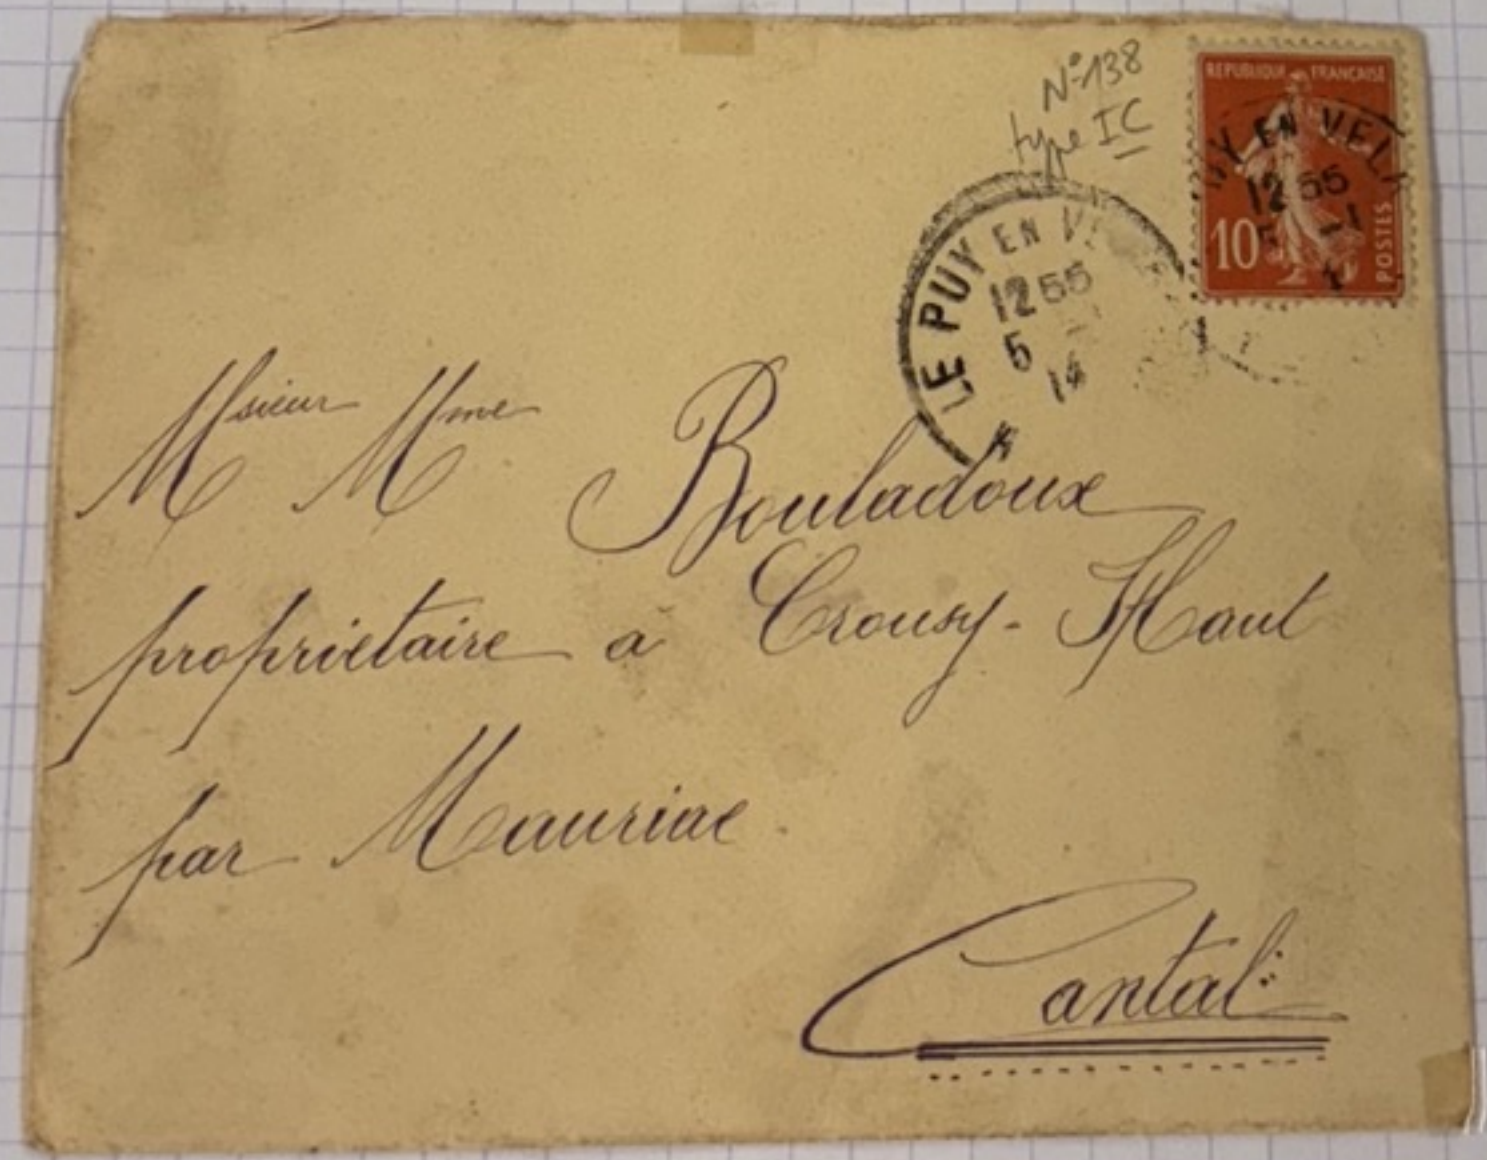 N° 138
type IC
REPUBLIQUE FRANCAISE
10
POSTES
PUY EN VELAY
12 55
5 -1
LE PUY EN VE
12 55
5 -1
14
Msieur Mme Bouladoux
proprietaire a Crousy-Haut
par Mauriac
Cantal